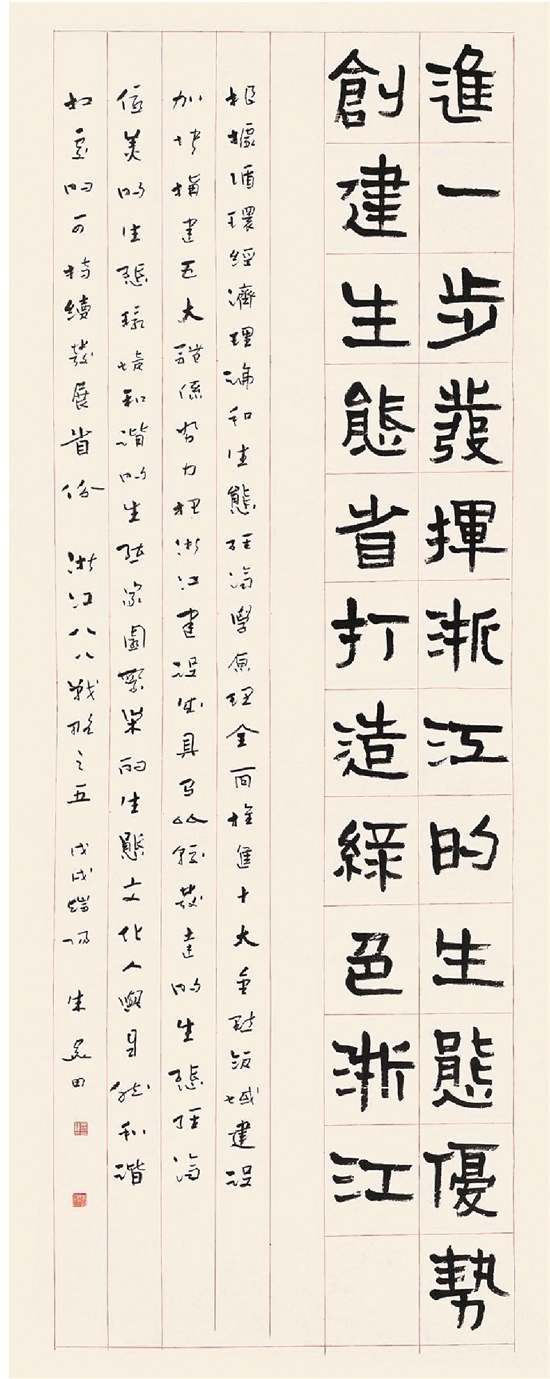 進一步發揮浙江的生態優勢
創建生態省打造綠色浙江
根據循環經濟理論和生態经济學原理全面推進十大重點領域建設
加快構建五大體係努力把浙江建設成具有比較發達的生態经济
優美的生態環境和諧的生態家園繁榮的生態文化人與自然和諧
相處的可持續發展省份 浙江八八戰略之五 戊戌端陽 朱關田